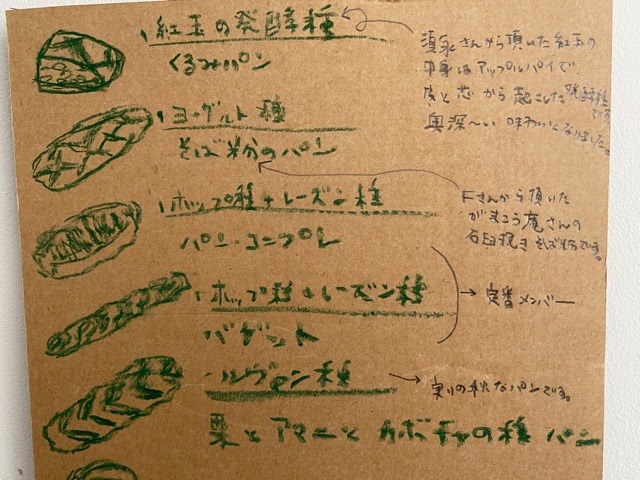 ・紅玉の発酵種
くるみパン
須永さんから頂いた紅玉の
中身はアップルパイで
皮と芯から起こした発酵種です
奥深〜い味わいとなりました。
・ヨーグルト種
そば粉のパン
Fさんから頂いた
がまこう庵さんの
石臼挽きそば粉です。
・ホップ種+レーズン種
パン・コンプレ
・ホップ種+レーズン種
バゲット
定番メンバー
・ルヴァン種
実りの秋なパンです。
栗とアマニとカボチャの種パン